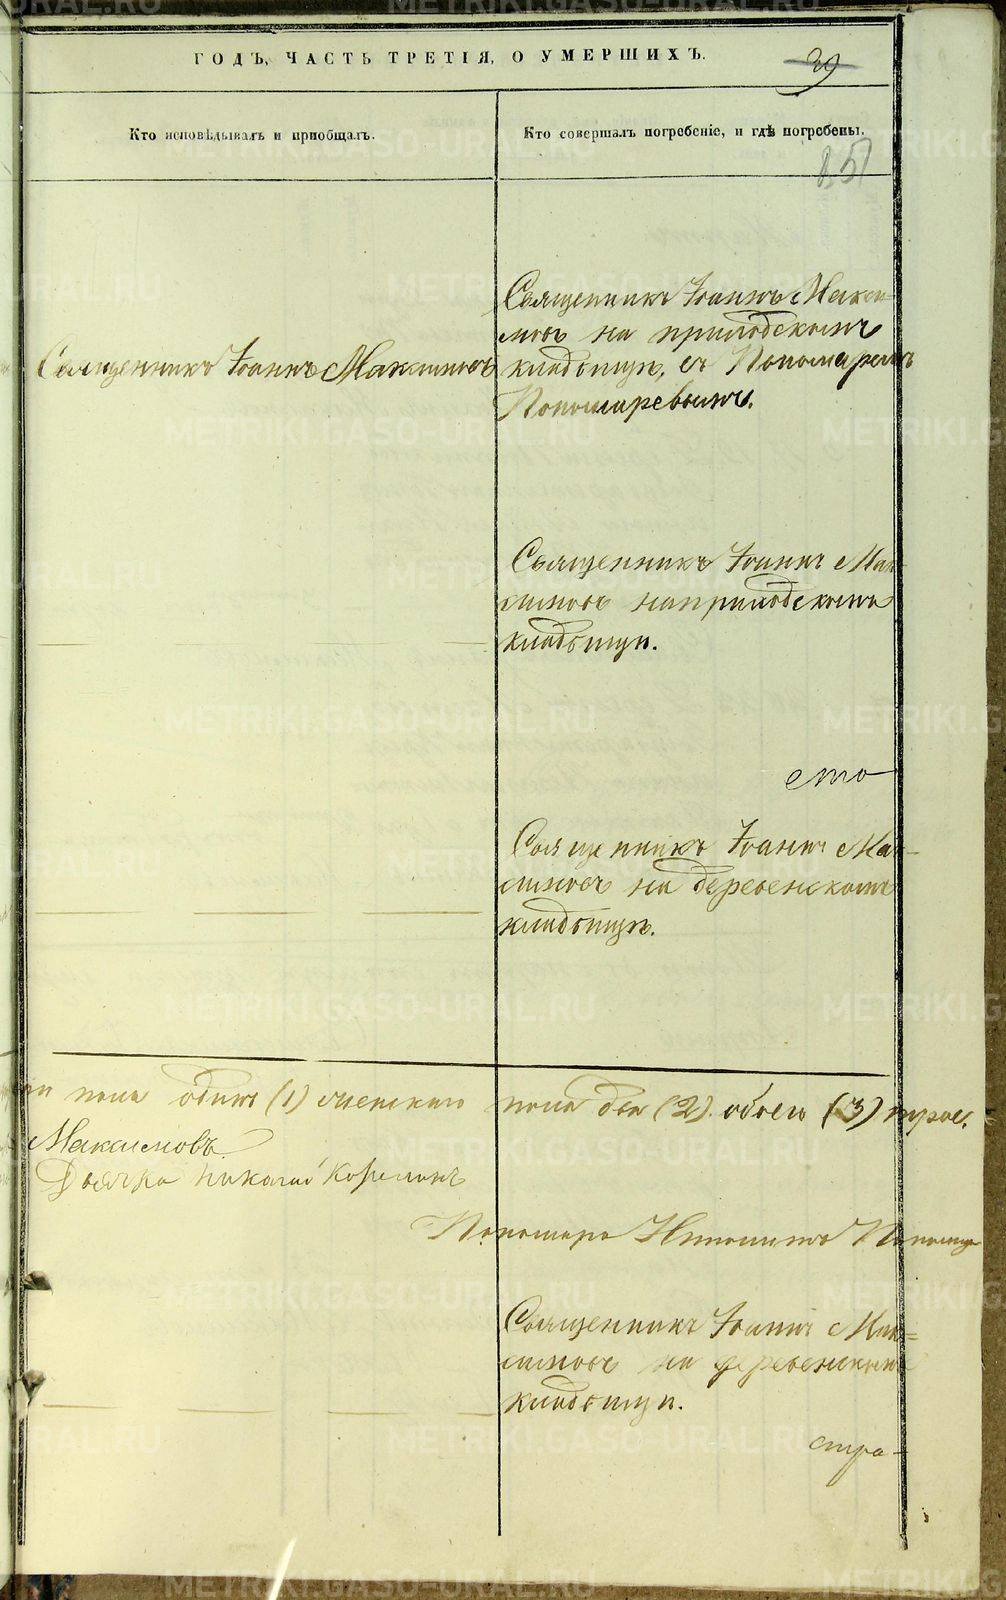 ГОДЪ, ЧАСТЬ ТРЕТІЯ, О УМЕРШИХЪ.
39
Кто исповѣдывалъ и пріобщалъ.
Кто совершалъ погребеніе, и гдѣ погребены.
Священникъ Іоаннъ Максимовъ
Священникъ Іоаннъ Макси-
мовъ на приходскомъ
кладбищѣ, съ Пономаремъ
Пономаревымъ.
Священникъ Іоаннъ Мак-
симовъ на приходскомъ
кладбищѣ.
сто
Священникъ Іоаннъ Мак-
симовъ на деревенскомъ
кладбищѣ.
пола одинъ (1) женскаго пола два (2). обоего (3) трое.
Максимовъ
Дьячекъ Николай
Пономарь
Священникъ Іоаннъ Мак=
симовъ на деревенскомъ
кладбищѣ.
стра-
METRIKI.GASO-URAL.RU